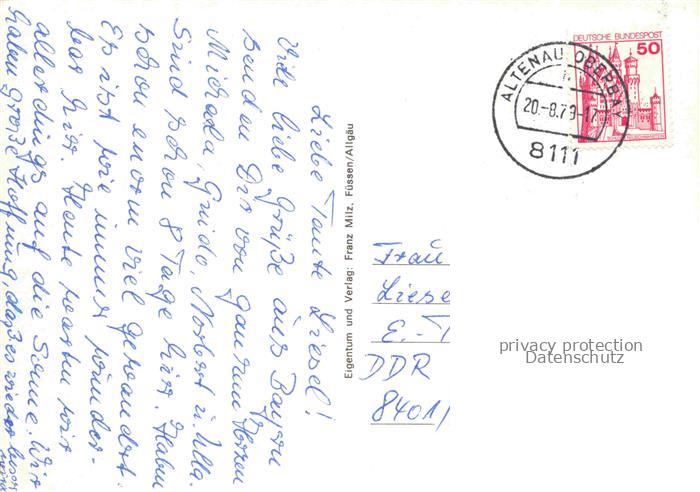 Liebe Tante Liesel!
Viele liebe Grüße aus Bayern
senden Dir von ganzem Herzen
Michaela, Guido, Norbert u. Ulla.
Sind schon 8 Tage hier. Haben
schon enorm viel gewandert.
Es ist wie immer wunder-
bar hier. Heute warten wir
allerdings auf die Sonne. Wir
haben große Hoffnung, daß es wieder besser
wird
Eigentum und Verlag: Franz Milz, Füssen/Allgäu
DEUTSCHE BUNDESPOST
50
ALTENAU OBERBAY
20.-8.79-17
8111
Frau
Liese
E.-T
DDR
8401/
privacy protection
Datenschutz